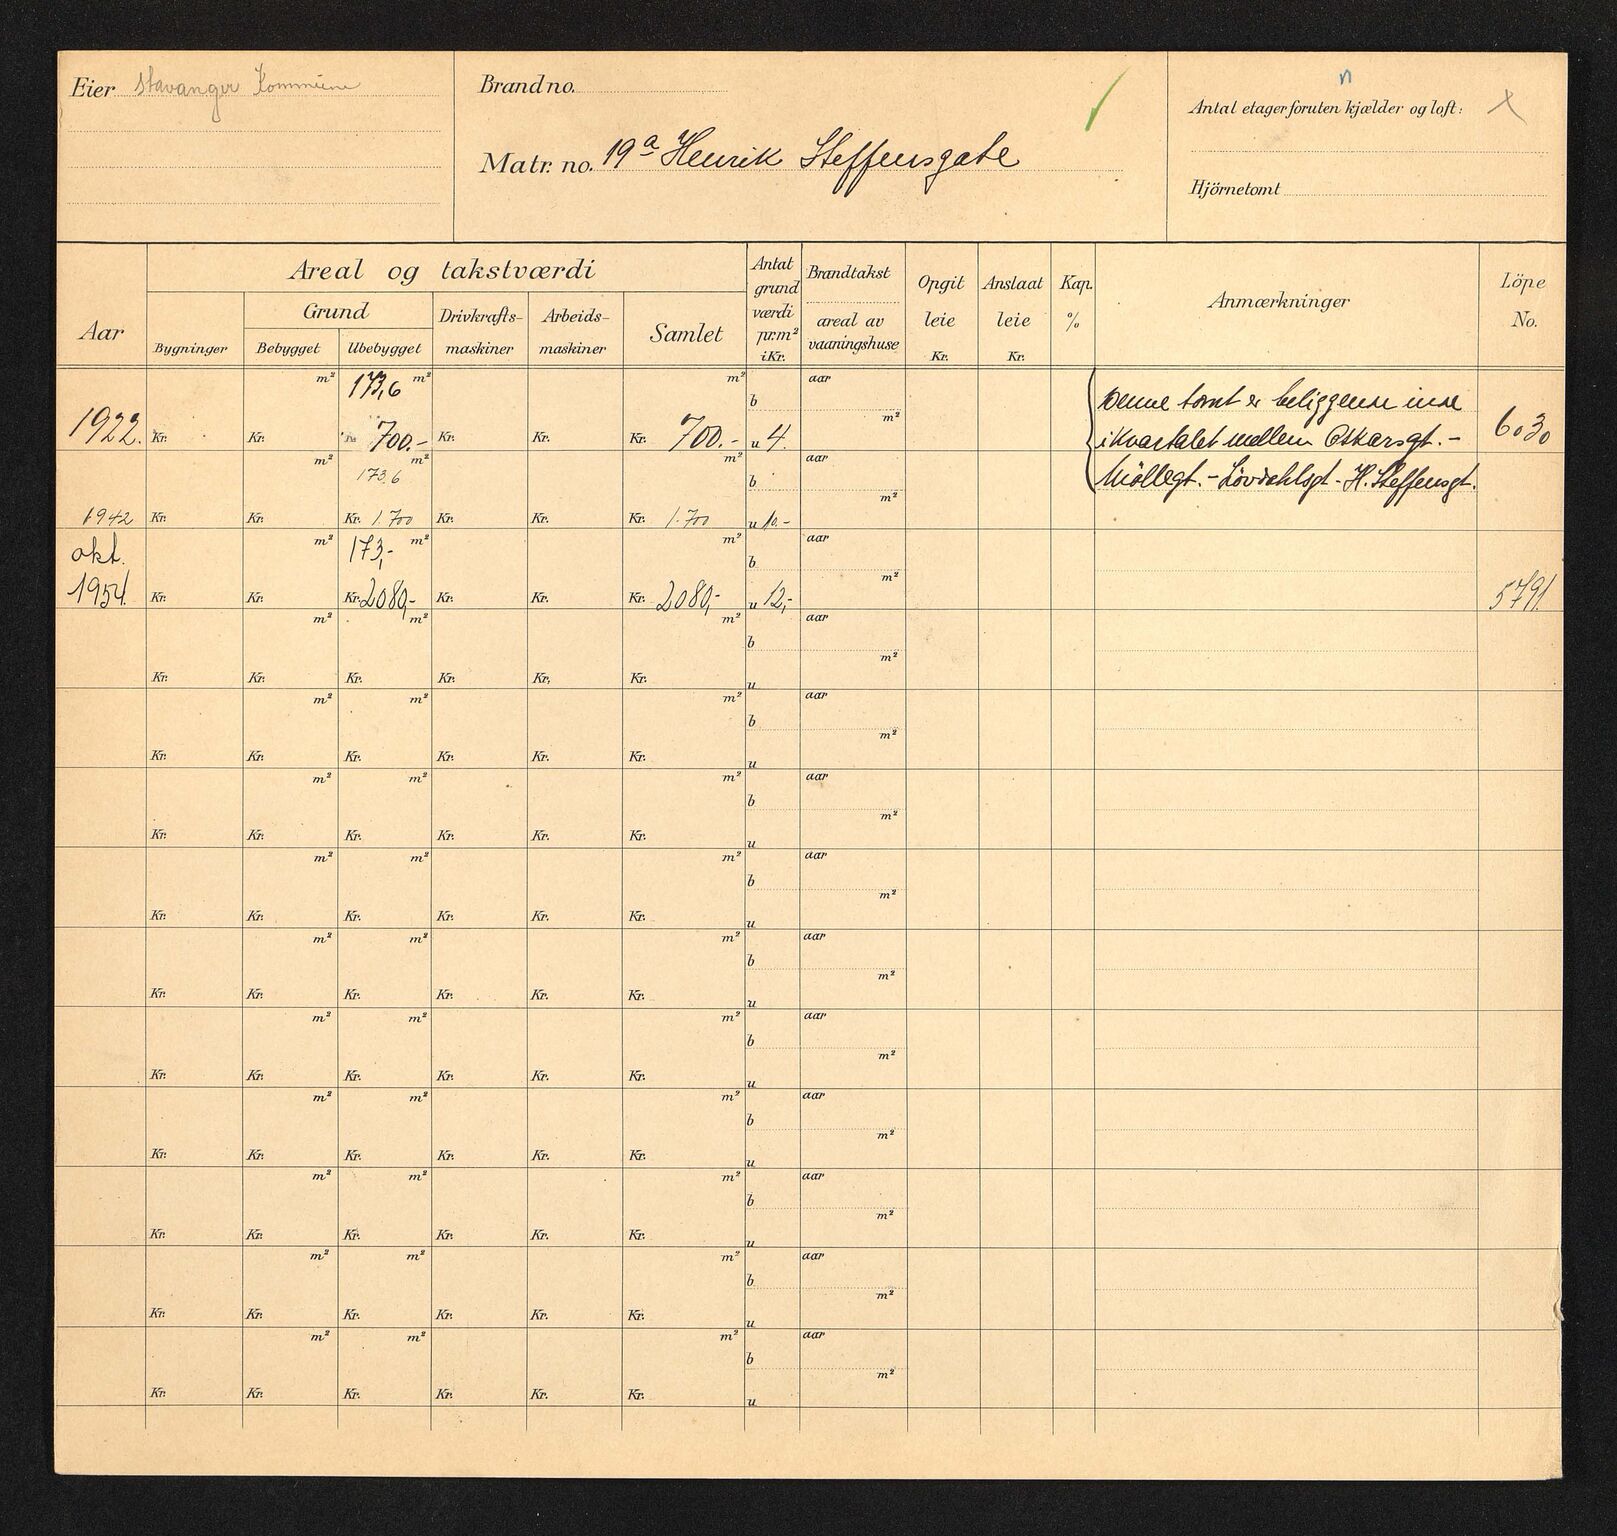 Eier Stavanger Kommune
Brandno.
Matr. no. 19a Henrik Steffensgate
n
Antal etager foruten kjælder og loft: x
Hjörnetomt
Aar
Areal og takstværdi
Grund
Bygninger
Bebygget
Ubebygget
Drivkrafts-
maskiner
Arbeids-
maskiner
Samlet
Antat
grund
værdi
pr. m²
i Kr.
Brandtakst
areal av
vaaningshuse
Opgit
leie
Kr.
Anslaat
leie
Kr.
Kap.
%
Anmærkninger
Löpe
No.
m² 173,6 m² m² b aar
1922. Kr. Kr. 700.- Kr. Kr. Kr. 700.- u 4. m²
Denne tomt er beliggende inde
i kvartalet mellem Oskarsgt. -
Möllegt. - Lövdahlsgt - H. Steffensgt.
6030
m² 173,6 m² m² b aar
1942 Kr. Kr. Kr. 1.700 Kr. Kr. Kr. 1.700 u 10.- m²
okt. m² 173,- m² m² b aar
1954. Kr. Kr. Kr. 2080,- Kr. Kr. Kr. 2080,- u 12,- m² 5791.
m² m² m² b aar
Kr. Kr. Kr. Kr. Kr. Kr. u m²
m² m² m² b aar
Kr. Kr. Kr. Kr. Kr. Kr. u m²
m² m² m² b aar
Kr. Kr. Kr. Kr. Kr. Kr. u m²
m² m² m² b aar
Kr. Kr. Kr. Kr. Kr. Kr. u m²
m² m² m² b aar
Kr. Kr. Kr. Kr. Kr. Kr. u m²
m² m² m² b aar
Kr. Kr. Kr. Kr. Kr. Kr. u m²
m² m² m² b aar
Kr. Kr. Kr. Kr. Kr. Kr. u m²
m² m² m² b aar
Kr. Kr. Kr. Kr. Kr. Kr. u m²
m² m² m² b aar
Kr. Kr. Kr. Kr. Kr. Kr. u m²
m² m² m² b aar
Kr. Kr. Kr. Kr. Kr. Kr. u m²